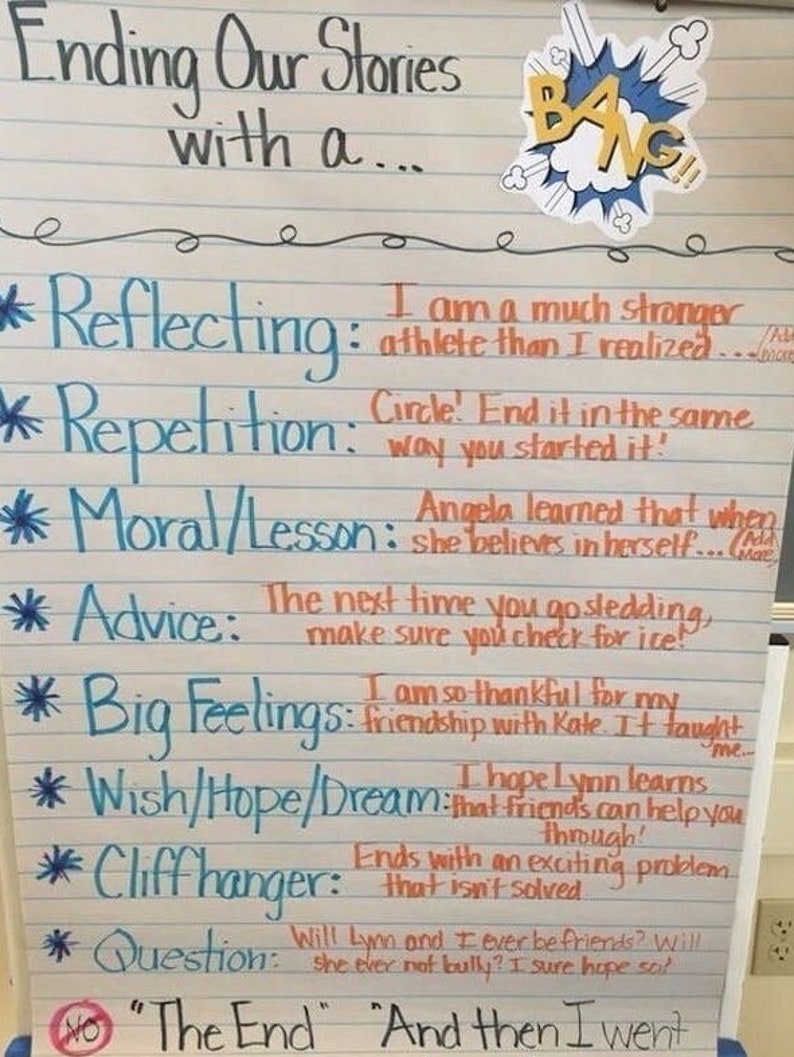 Ending Our Stories
with a...
BANG!!
Reflecting: I am a much stronger
athlete than I realized... (Add more)
Repetition: Circle! End it in the same
way you started it!
Moral/Lesson: Angela learned that when
she believes in herself... (Add More)
Advice: The next time you go sledding,
make sure you check for ice!
Big Feelings: I am so thankful for my
friendship with Kate. It taught
me...
Wish/Hope/Dream: I hope Lynn learns
that friends can help you
through!
Cliffhanger: Ends with an exciting problem
that isn't solved
Question: Will Lynn and I ever be friends? Will
she ever not bully? I sure hope so!
NO "The End" "And then I went